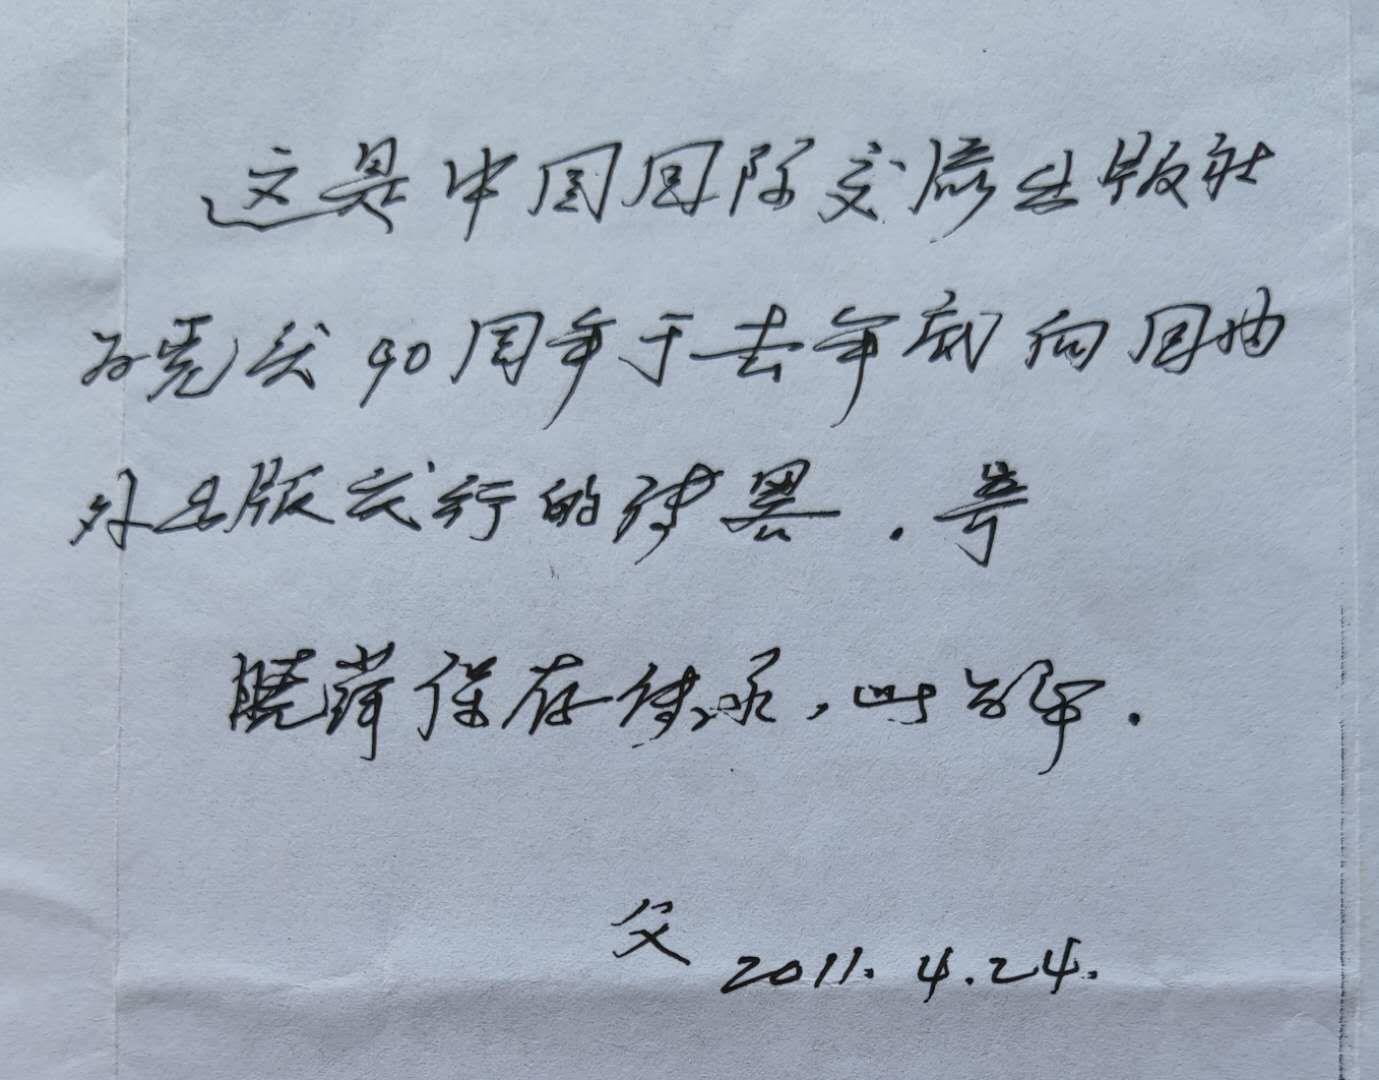 这是中国国际交流出版社
为党庆90周年于去年底向国内
外出版发行的诗墨.寄
晓萍保存传承,
父 2011.4.24.